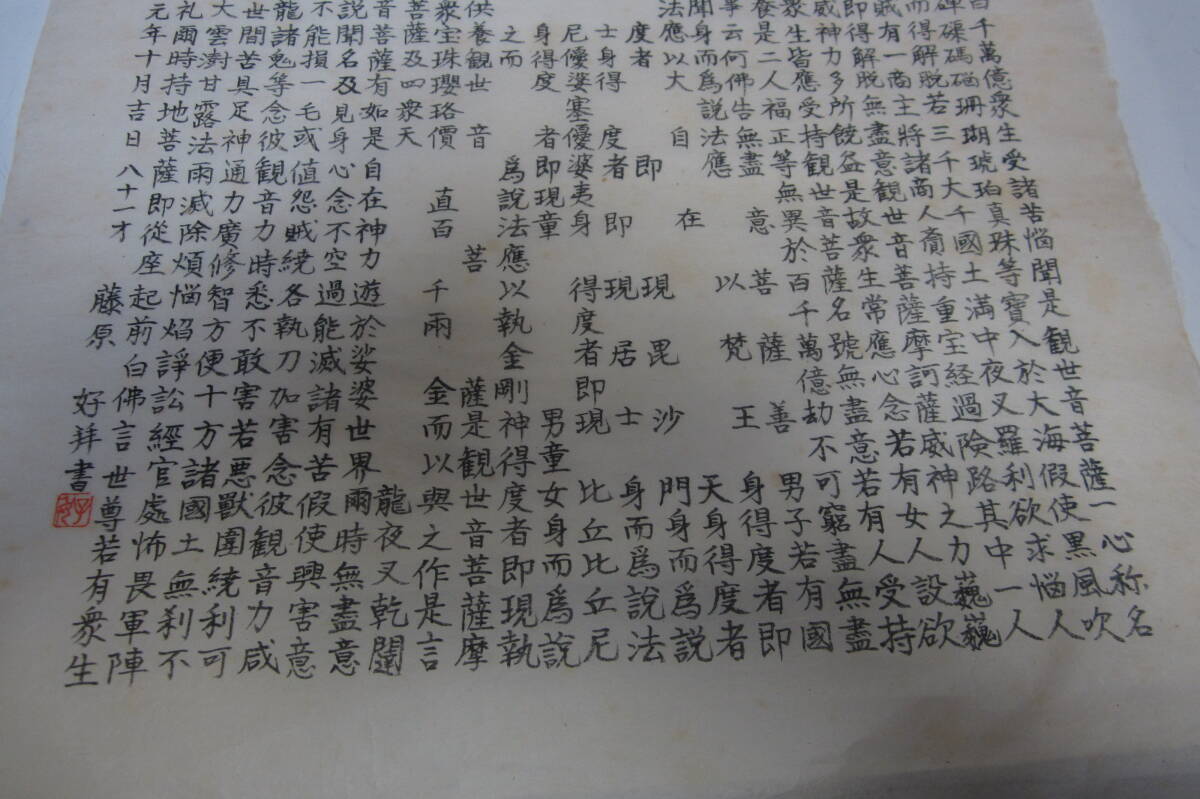 百千萬億衆生受諸苦惱聞是観世音菩薩一心称名
硨磲碼碯珊瑚琥珀真珠等寶入於大海假使黒風吹
而得解脱若三千大千國土満中夜叉羅利欲求惱人
賊有一商主將諸商人齎持重宝経過険路其中一人
即得解脱無盡意観世音菩薩摩訶薩威神之力巍巍
威神力多所饒益是故衆生常應心念若有女人設欲
衆生皆應受持観世音菩薩名號無盡意若有人受持
養是二人福正等無異於百千萬億劫不可窮盡無盡
事云何佛告無盡意菩薩善男子若有國
聞身而為説法應以梵王身得度者即
法應以大自在天身得度者
度者即現毘沙門身而為説
士身得度者即現居士身而為説法
尼優婆塞優婆夷身得度者即現比丘比丘尼
身得度者即現童男童女身而為説
之而為説法應以執金剛神得度者即現執
供養観世音菩薩是観世音菩薩摩
衆宝珠瓔珞價直百千両金而以與之作是言
菩薩及四衆天龍夜叉乾闥
音菩薩有如是自在神力遊於娑婆世界爾時無盡意
説聞名及見身心念不空過能滅諸有苦假使興害意
不能損一毛或値怨賊繞各執刀加害念彼観音力咸
龍諸鬼等念彼観音力時悉不敢害若悪獣圍繞利可
世間苦具足神通力廣修智方便十方諸國土無刹不
大雲澍甘露法雨滅除煩惱焰諍訟經官處怖畏軍陣
礼爾時持地菩薩即從座起前白佛言世尊若有衆生
元年十月吉日 八十一才 藤原 好拝書